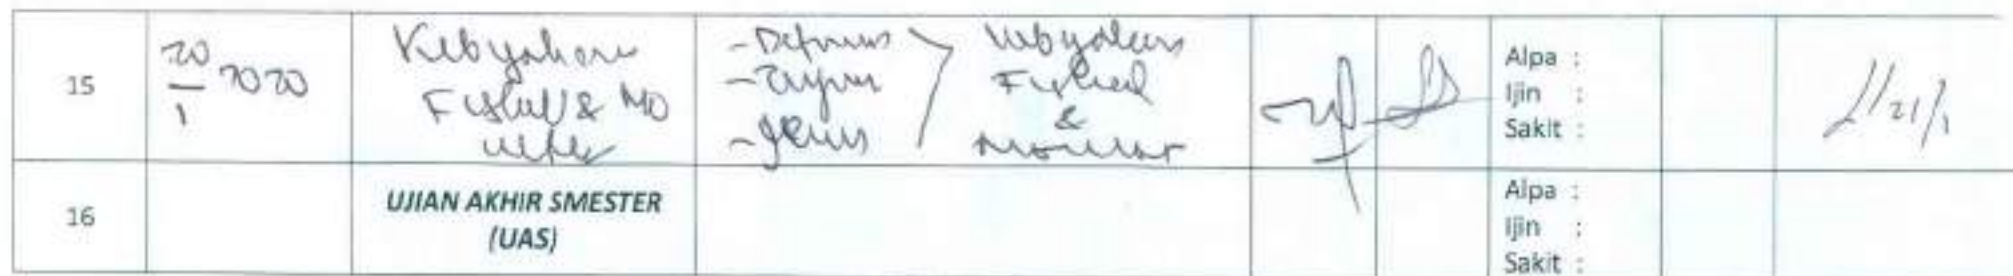 15
20/1 2020
Kebijakan
Fiskal & Mo
neter
- Definisi
- Tujuan
- Jenis
Kebijakan
Fiskal
&
Moneter
Alpa :
Ijin :
Sakit :
21/1
16
UJIAN AKHIR SMESTER
(UAS)
Alpa :
Ijin :
Sakit :